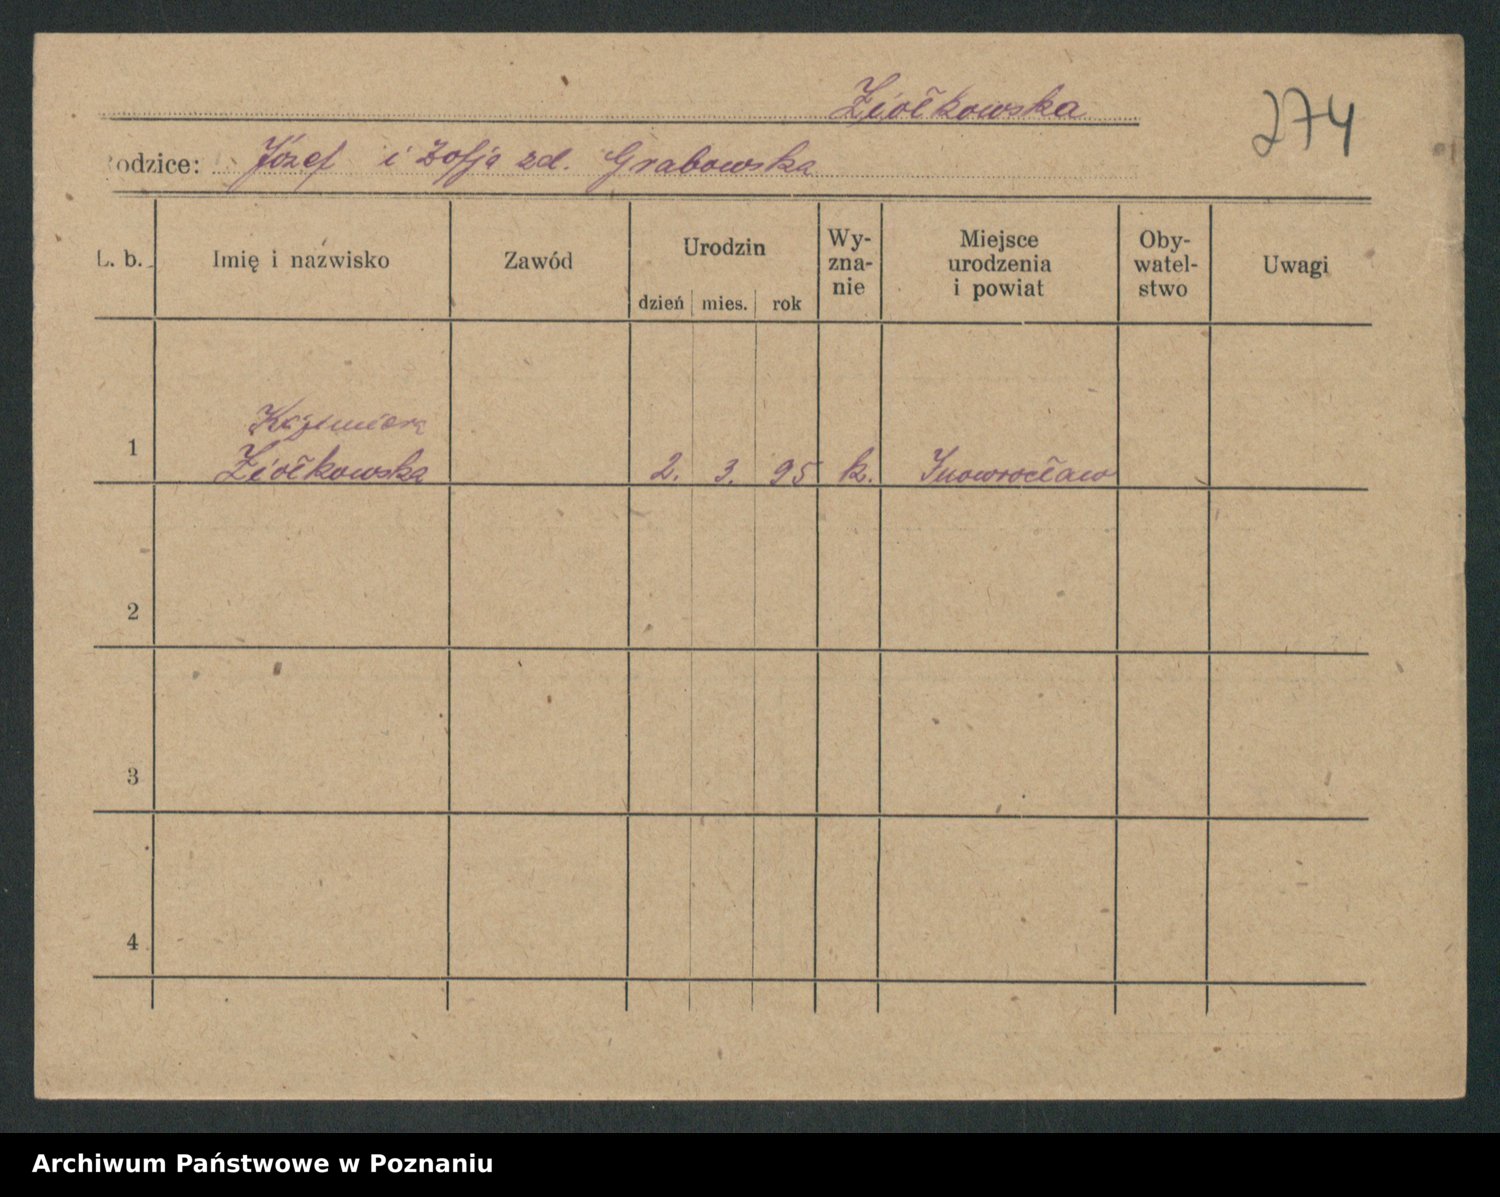 Ziółkowska
274
Rodzice: Józef i Zofja zd. Grabowska
L. b. Imię i nazwisko Zawód Urodzin dzień mies. rok Wy- zna- nie Miejsce urodzenia i powiat Oby- watel- stwo Uwagi
Kazimiera
1 Ziółkowska 2. 3. 95 k. Inowrocław
2
3
4
Archiwum Państwowe w Poznaniu